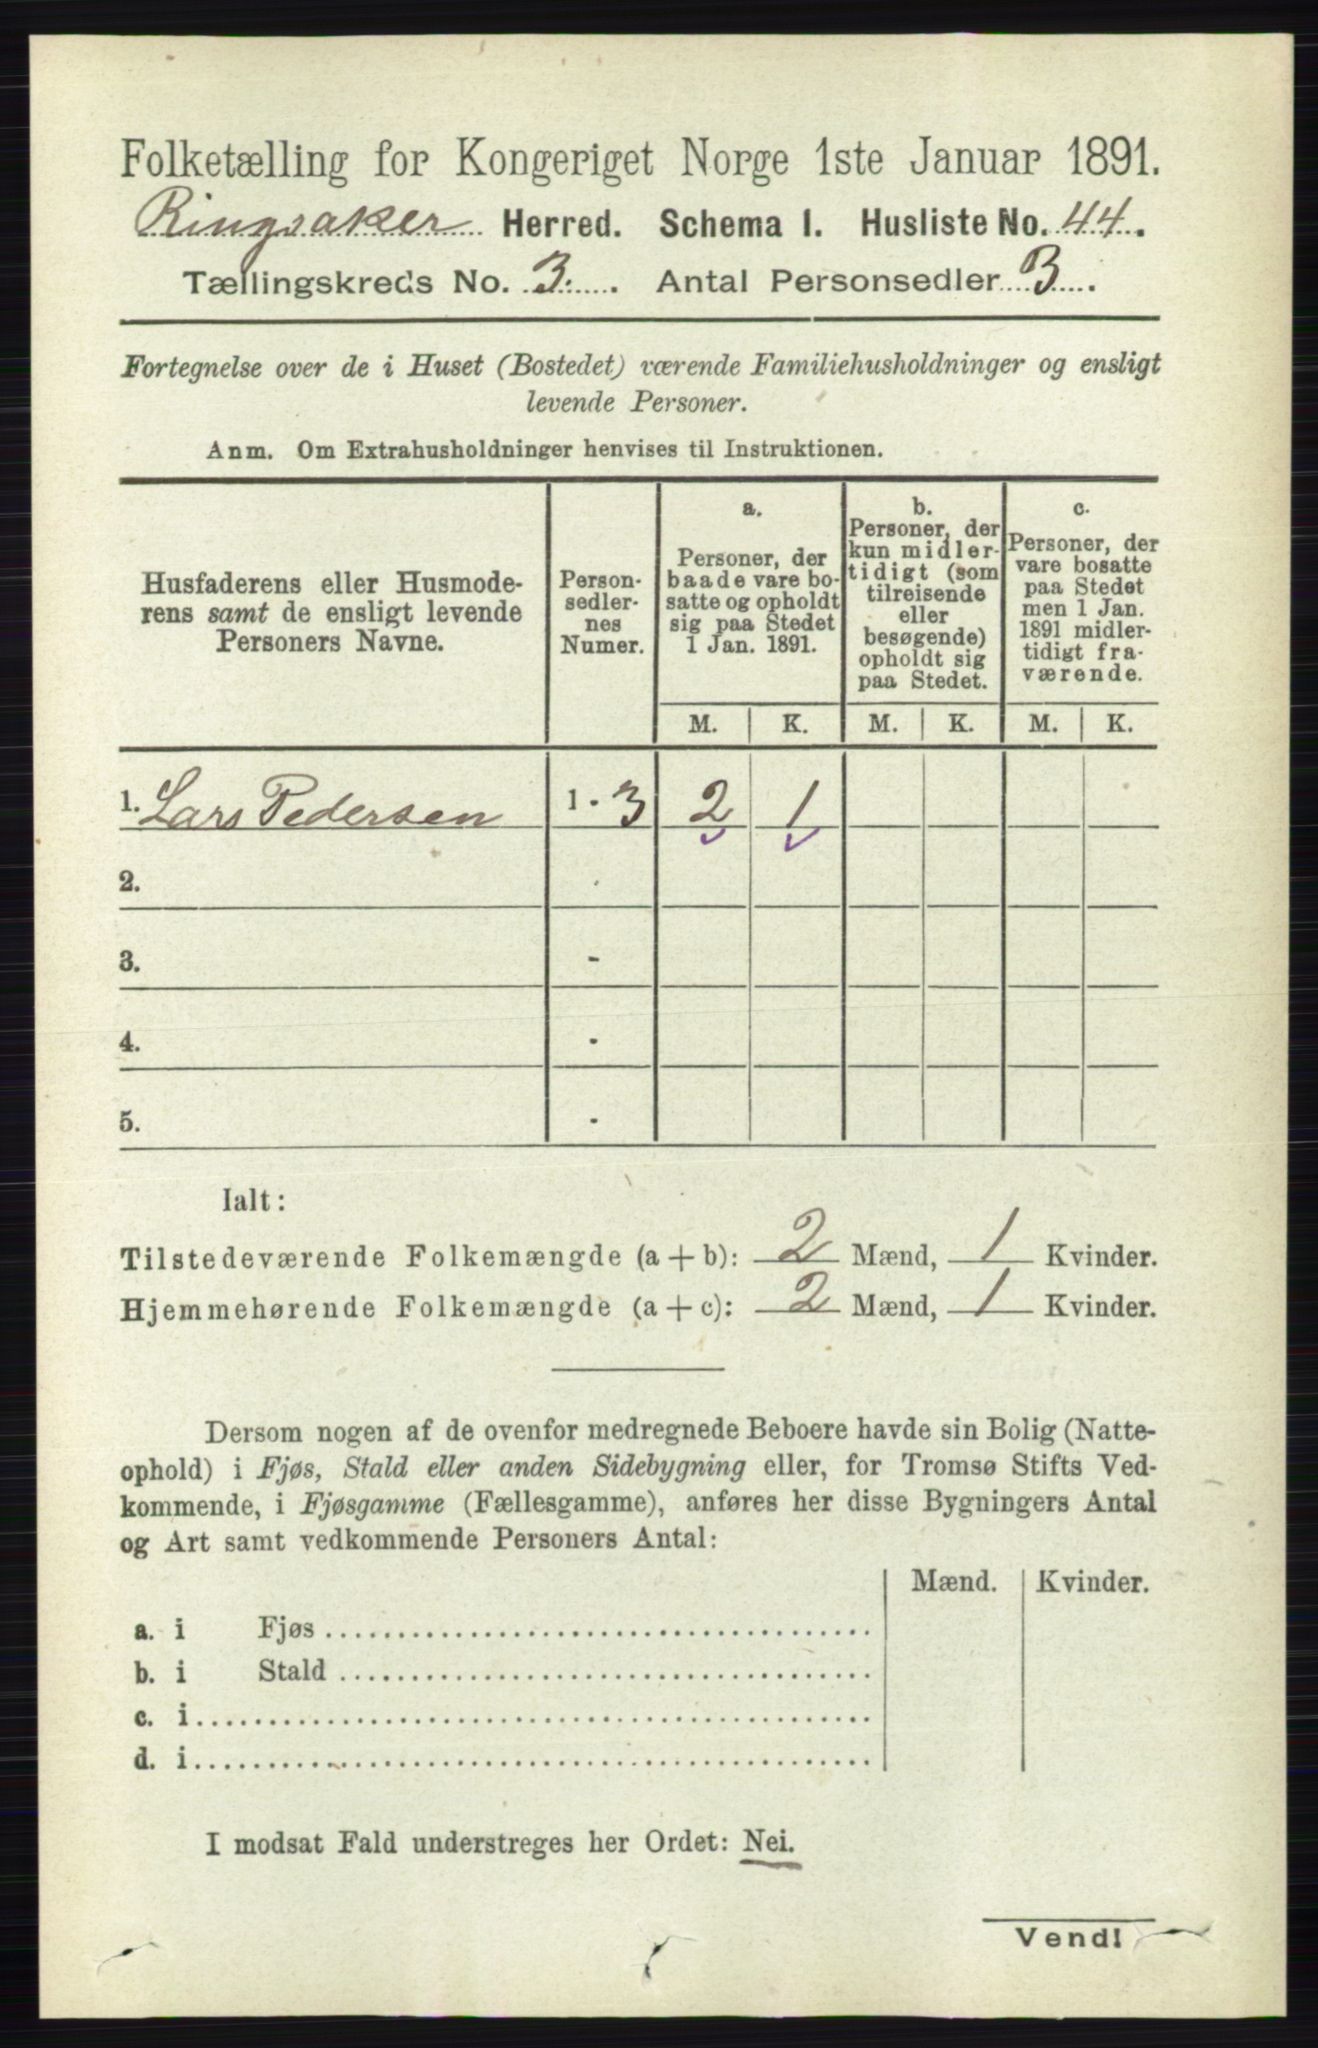 Folketælling for Kongeriget Norge 1ste Januar 1891.
Ringsaker Herred. Schema I. Husliste No. 44.
Tællingskreds No. 3. Antal Personsedler 3.
Fortegnelse over de i Huset (Bostedet) værende Familiehusholdninger og ensligt
levende Personer.
Anm. Om Extrahusholdninger henvises til Instruktionen.
Husfaderens eller Husmode-
rens samt de ensligt levende
Personers Navne.
Person-
sedler-
nes
Numer.
a.
Personer, der
baade vare bo-
satte og opholdt
sig paa Stedet
1 Jan. 1891.
b.
Personer, der
kun midler-
tidigt (som
tilreisende
eller
besøgende)
opholdt sig
paa Stedet.
c.
Personer, der
vare bosatte
paa Stedet
men 1 Jan.
1891 midler-
tidigt fra-
værende.
M. K. M. K. M. K.
1. Lars Pedersen 1 - 3 2 1
2. -
3. -
4. -
5. -
Ialt:
Tilstedeværende Folkemængde (a + b): 2 Mænd, 1 Kvinder.
Hjemmehørende Folkemængde (a + c): 2 Mænd, 1 Kvinder.
Dersom nogen af de ovenfor medregnede Beboere havde sin Bolig (Natte-
ophold) i Fjøs, Stald eller anden Sidebygning eller, for Tromsø Stifts Ved-
kommende, i Fjøsgamme (Fællesgamme), anføres her disse Bygningers Antal
og Art samt vedkommende Personers Antal:
Mænd. Kvinder.
a. i Fjøs
b. i Stald
c. i
d. i
I modsat Fald understreges her Ordet: Nei.
Vend!